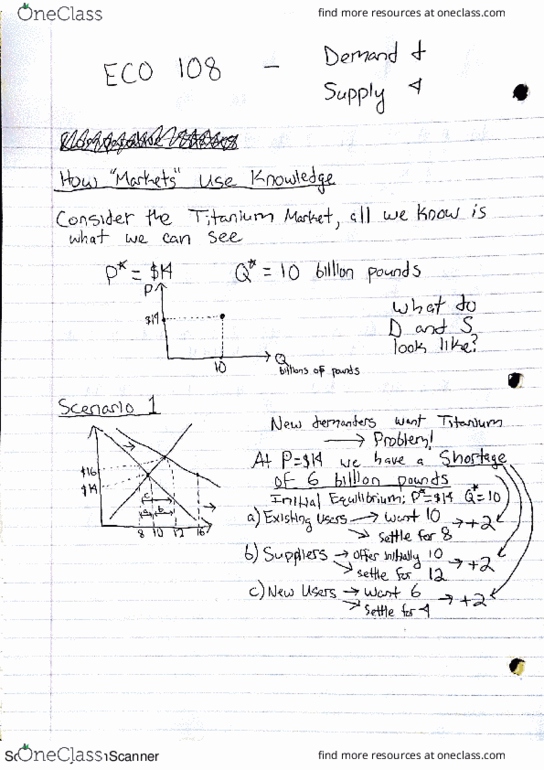 OneClass
find more resources at oneclass.com
ECO 108 - Demand &
Supply
How "Markets" Use Knowledge
Consider the Titanium Market, all we know is
what we can see
P* = $14 Q* = 10 billion pounds
P
$14
10
Q
billions of pounds
what do
D and S
look like?
Scenario 1
New demanders want Titanium
→ Problem!
At P=$14 we have a Shortage
of 6 billion pounds
Initial Equilibrium: P*=$14 Q*=10
a) Existing Users → want 10
settle for 8
→ +2
b) Suppliers → offer initially 10
settle for 12
→ +2
c) New Users → want 6
settle for 4
→ +2
$16
$14
c
a b
8 10 12 16
OneClass
Scanner
find more resources at oneclass.com